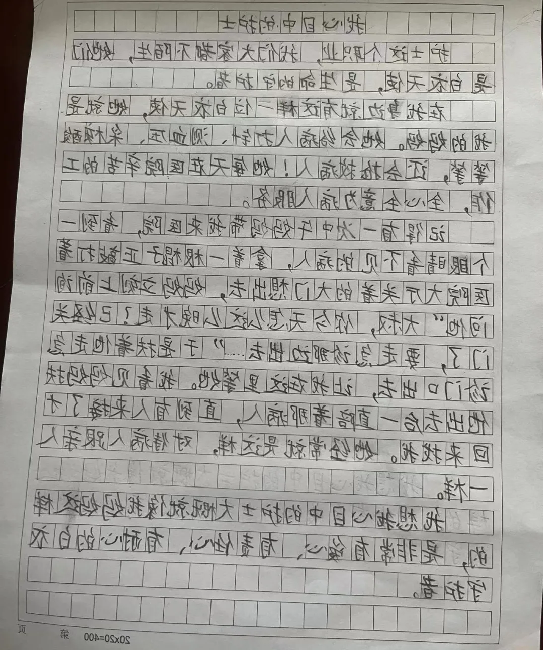 我心目中的护士
护士这个职业，我们大家都不陌生，她们
是白衣天使，是生命的守护者。
在我身边就有这样一位白衣天使，她就是
我的妈妈。她会给病人打针、测血压、采核酸
等等，还会抢救病人！她每天在医院辛苦的工
作，全心全意为病人服务。
记得有一次中午妈妈带我来医院，看到一
个眼睛看不见的病人，拿着一根棍子正敲打着
医院大厅关着的大门想出去，妈妈立刻上前询
问他“大叔，你今天怎么这么晚才走？已经关
门了，要走急诊那边出去……”于是扶着他走急
诊门口出去，让我在这里等她。我看见妈妈扶
他出去后一直陪着那病人，直到有人来接了才
回来找我。她经常就是这样，对待病人跟亲人
一样。
我想我心目中的护士大概就像我妈妈这样
的，是非常有爱心、有责任心、有耐心的白衣
守护者。
20×20=400 第 页